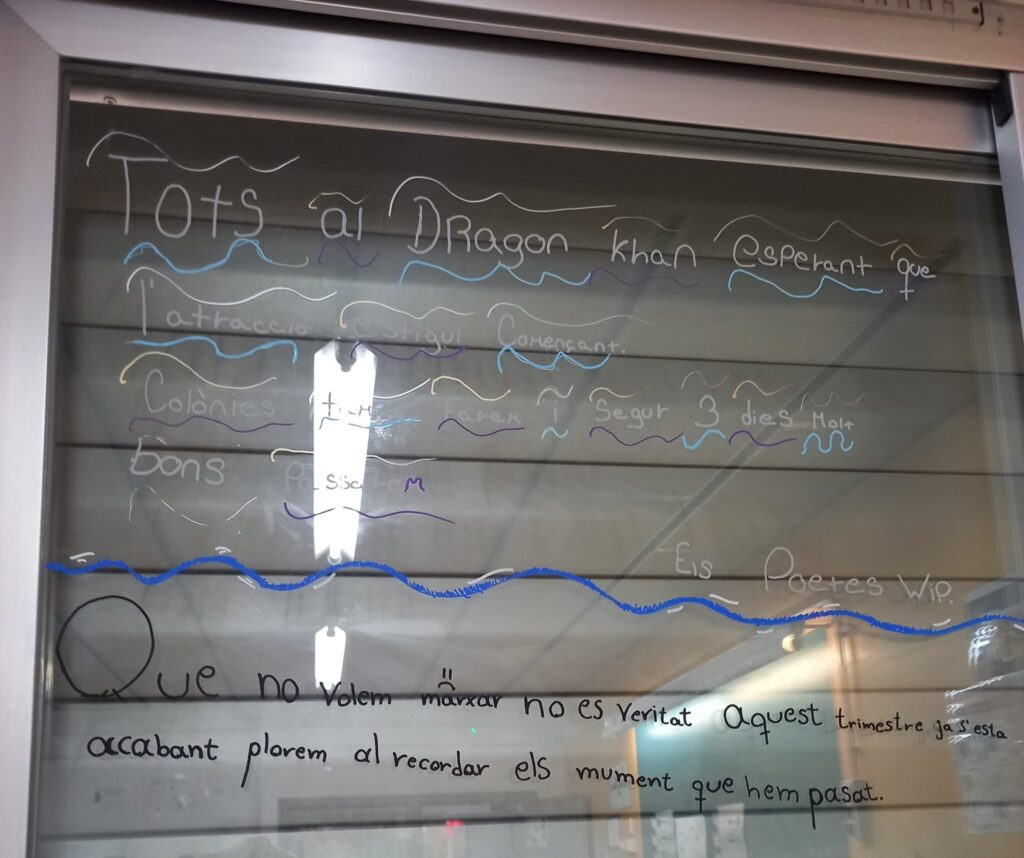 Tots al DRagon khan esperant que
l'atraccio estigui Començant.
Colònies farem i Segur 3 dies Molt
bons
Els Poetes WIP.
Que no volem marxar no es veritat aquest trimestre ja s'esta
accabant plorem al recordar els mument que hem pasat.